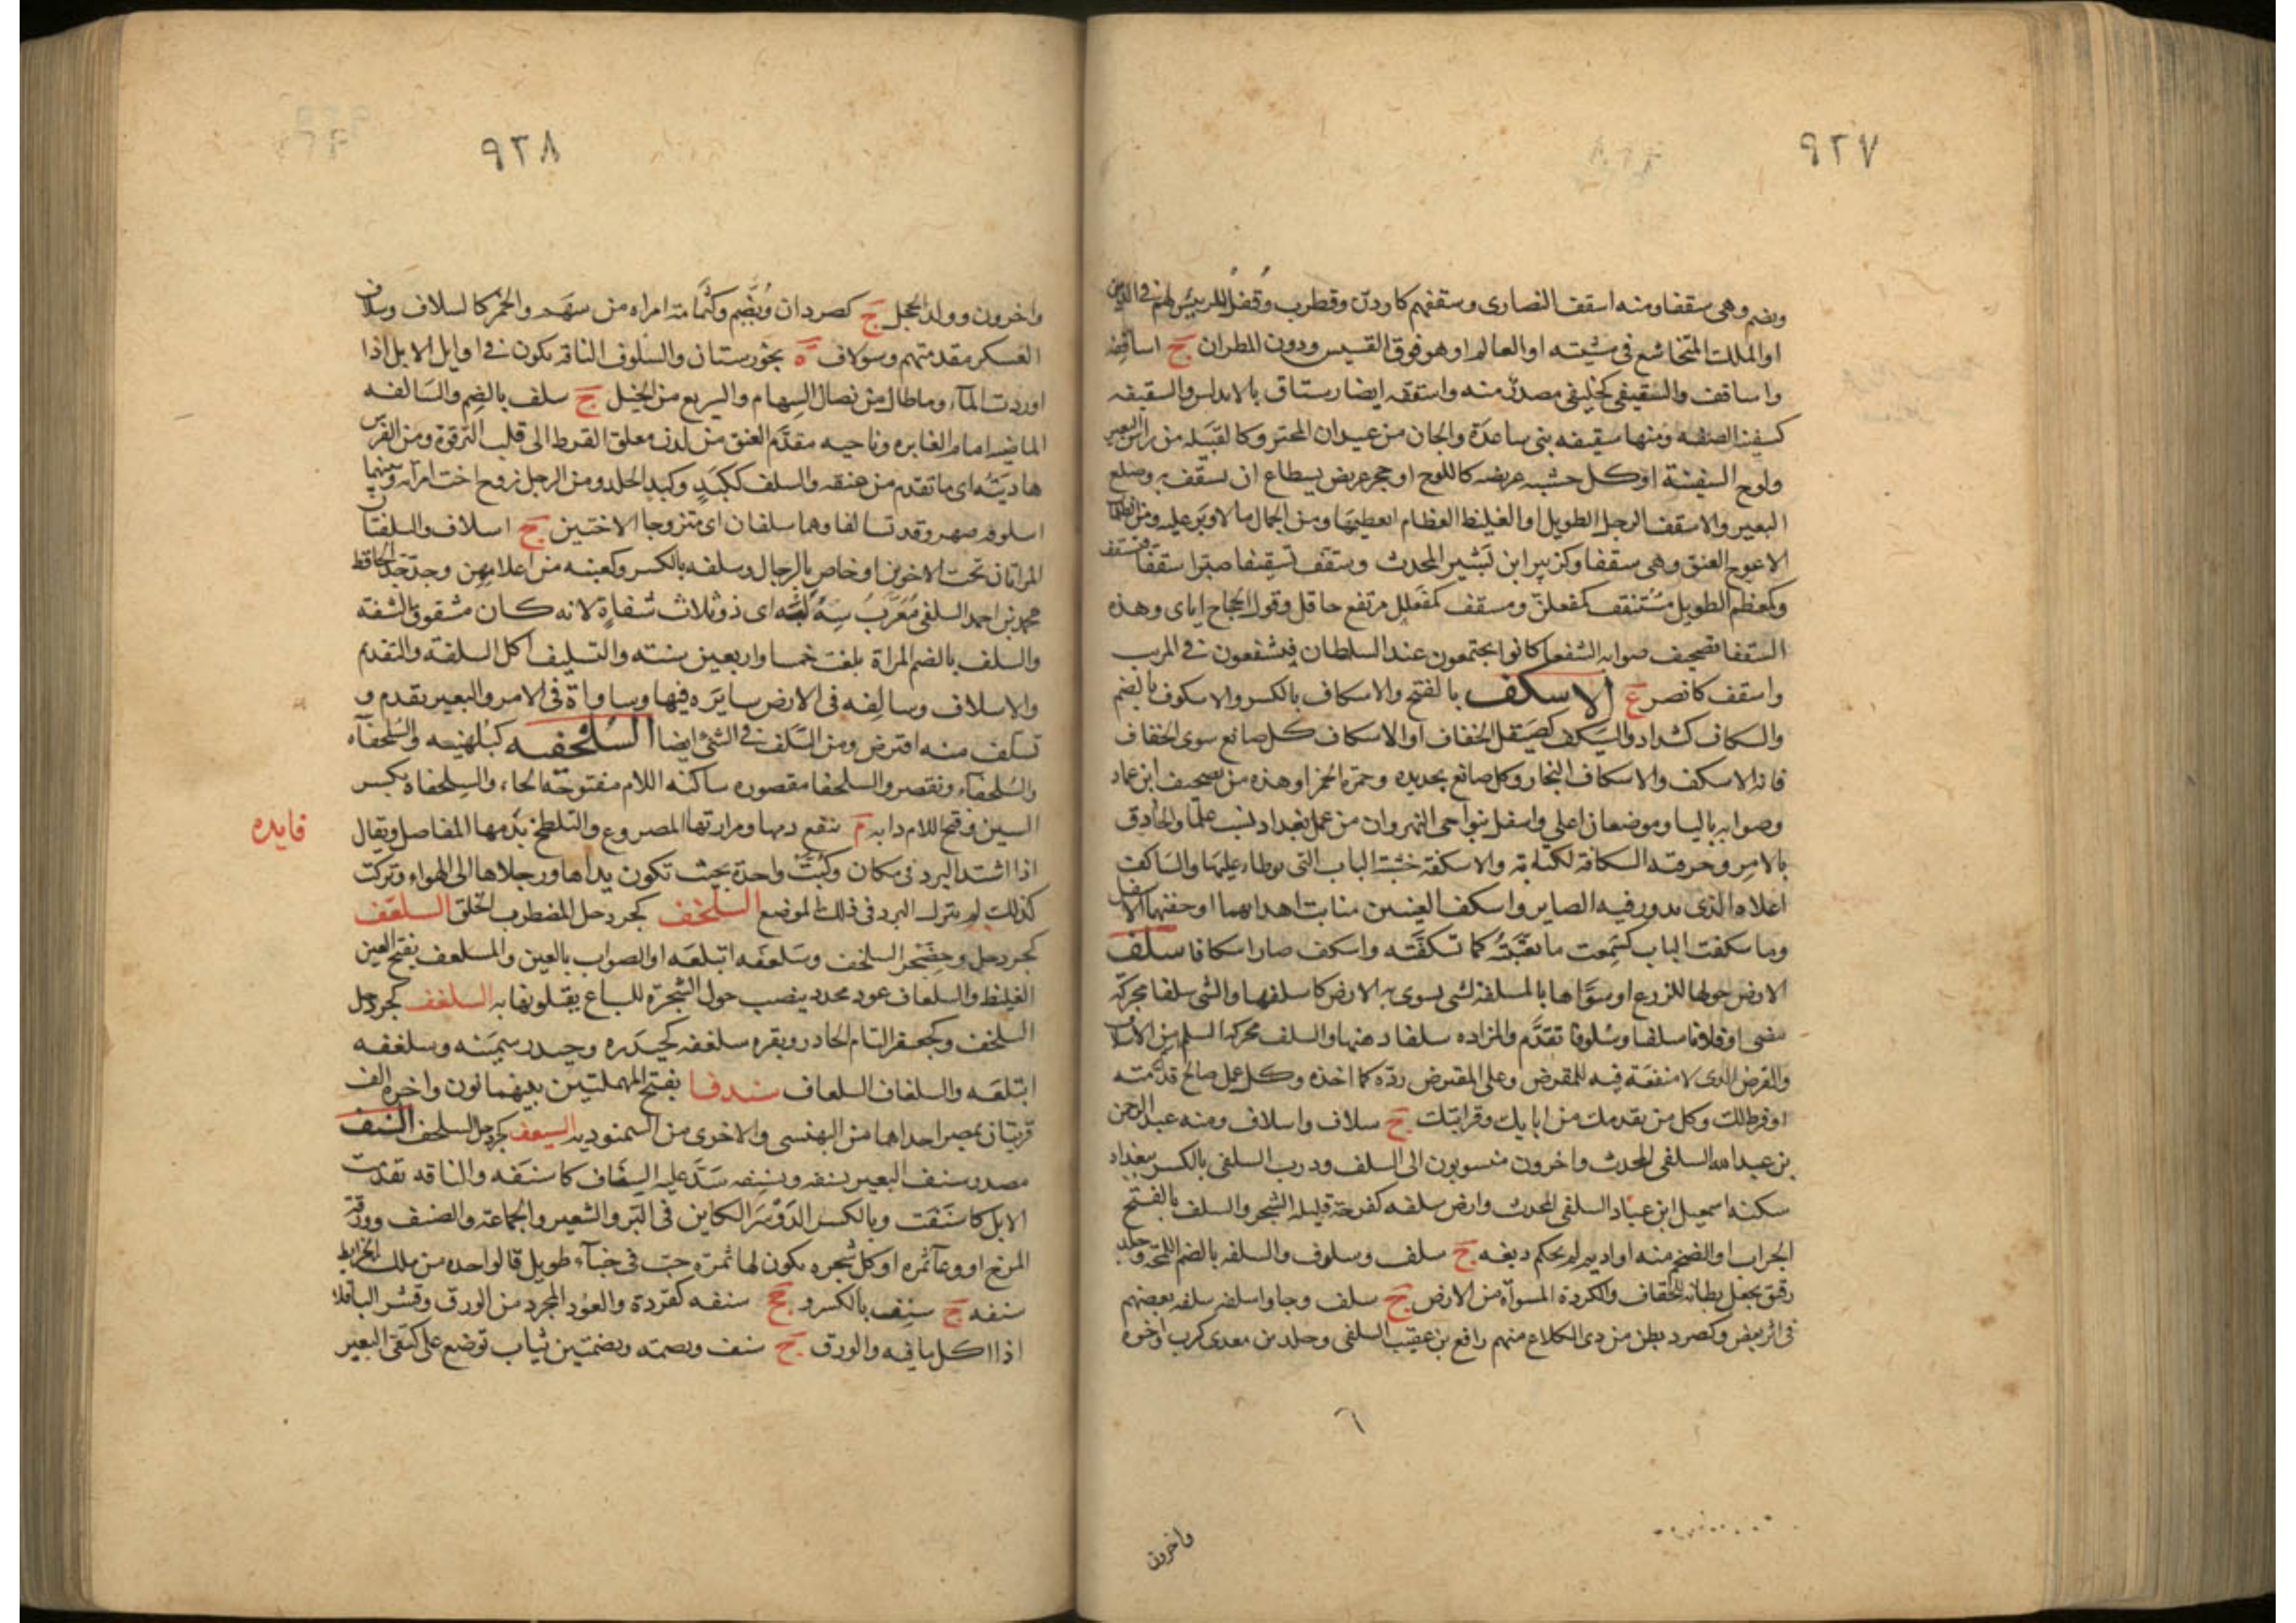 ٩٢٧
ويضم وهي سقفا ومنه اسقف النصارى وسقفهم كاردن وقطرب وقفل لرييس لهم في الدين
او الملك المتخاشع في مشيته او العالم او هو فوق القسيس ودون المطران ج اساقفه
واساقف والسقيفى كخليفى مصدر منه واسقفه ايضا رستاق بالاندلس والسقيفه
كسفينه الصفه ومنها سقيفه بنى ساعدة والجان من عيدان المحتر وكالقبيله من راس البعير
ولوح السفينة او كل خشبه عريضه كاللوح او حجر عريض يسطاع ان يسقف به وضلع
البعير والاسقف الرجل الطويل او الغليظ العظام العظيمها ومن الجمال ما لا وبر عليه ومن الظلمان
الاعوج العنق وهي سقفا وكزبير ابن بشير المحدث وسقف تسقيفا صير اسقفا فتسقف
وكمعظم الطويل مسنقف كمفعلل ومسقف كمفعلل مرتفع حاقل وقول الحجاج اياى وهذه
السقفا تصحيف صوابه الشفعا كانوا يجتمعون عند السلطان فيشفعون في المريب
واسقف كانصر ع الاسكف بالفتح والاسكاف بالكسر والاسكوف بالضم
والسكاف كشداد والسيكف كصيقل الخفاف او الاسكاف كل صانع سوى الخفاف
فانه الاسكف والاسكاف النجار وكل صانع بحديده وحمرة الخمر او هذه من تصحيف ابن عباد
وصوابه باليا وموضعان اعلى واسفل بنواحى النهروان من عمل بغداد نسب علما والحاذق
بالامر وحرفته السكافة لكتابة والاسكفة خشبة الباب التى يوطاء عليها والساكف
اعلاه الذى يدور فيه الصاير واسكف العينين منابت اهدابهما او جفنهما الاسفل
وما سكفت الباب كسمعت ما تعتبته كما تسكفته واسكف صار اسكافا سلف
الارض حولها للزرع او سواها بالمسلفة لشى يسوى به الارض كاسلفها والشى سلفا محركة
مضى او فلانا سلفا وسلوفا تقدم والمزاده سلفا دهنها والسلف محركه السلم من الاسلاف
والقرض الذى لا منفعة فيه للمقرض وعلى المقترض رده كما اخذه وكل عمل صالح قدمته
او فرط لك وكل من تقدمك من ابايك وقرابتك ج سلاف واسلاف ومنه عبد الرحمن
بن عبد الله السلفى المحدث واخرون منسوبون الى السلف ودرب السلفى بالكسر ببغداد
سكنه اسمعيل ابن عباد السلفى المحدث وارض سلفه كفرحة قليله الشجر والسلف بالفتح
الجراب او الضخم منه او اديم لم يحكم دبغه ج سلف وسلوف والسلفه بالضم اللمجة وجلد
رقيق يجعل بطانه للخفاف والكردة المسواة من الارض ج سلف وجاوا سلفه سلفه بعضهم
فى اثر بعض وكصرد بطن من ذى الكلاع منهم رافع بن عقيب السلفى وخلد بن معدى كرب اخوه
٦
واخرون
٩٢٨
واخرون وولد الحجل ج كصردان ويضم وكثمامة امراه من سهم والخمر كالسلاف وسلاف
العسكر مقدمتهم وسولاف ة بخورستان والسلوف الناقه يكون في اوايل الابل اذا
اوردت الماء وما طال من نصال السهام والسريع من الخيل ج سلف بالضم والسالفه
الماضيه امام الغابره وناحيه مقدم العنق من لدن معلق القرط الى قلب الترقوة ومن الفرس
هاديته اى ما تقدم من عنقه والسلف ككبد وكبد الجلد ومن الرجل زوج اخت امراته وبينهما
اسلوفه صهر وقد تسالفا وهما سلفان اى متزوجا الاختين ج اسلاف والسلفتان
المراتان تحت الاخوين او خاص بالرجال وسلفه بالكسر وكعنبه من اعلامهن وجد جد الحافظ
محمد بن احمد السلفى معرب سه لبه اى ذو ثلاث شفاه لانه كان مشقوق الشفة
والسلف بالضم المراة بلغت خمسا واربعين سنته والتسليف اكل السلفة والتقدم
والاسلاف وسالفه فى الارض سايره فيها وساواة فى الامر والبعير تقدم و
تسلف منه اقترض ومن السلف في الشى ايضا السلحفه كبلهنيه والسلحفآه
والسلحفآء وتقصر والسلحفا مقصوره ساكنه اللام مفتوحة الحاء والسلحفاة بكسر
السين وفتح اللام دابه م ينفع دمها ومرارتها المصروع والتلطخ بدمها المفاصل ويقال
فايده
اذا اشتد البرد فى مكان وكبت واحدة بحيث تكون يداها ورجلاها الى الهواء وتركت
كذلك لم ينزل البرد فى ذلك الموضع السلخف كجردحل المضطرب الخلق السلعف
كجردحل وحضجر السلخف وسلعفه ابتلعه او الصواب بالعين والمسلعف بفتح العين
الغليظ والسلعاف عود محدد ينصب حول الشجرة للسباع يقتلونها به السلغف كجردحل
السلخف وكجعفر التام الحادر وبقره سلغفه كحيدره وحيدر سمينه وسلغفه
ابتلعه والسلغاف السلعاف سندفا بفتح المهملتين بينهما نون واخره الف
قريتان بمصر احداهما من البهنسى والاخرى من السمنوديه السنعف كجردحل السلخف السنف
مصدر سنف البعير يسنفه ويسنفه شد عليه السناف كاسنفه والناقه تقدمت
الابل كاسنفت وبالكسر الدوسر الكاين فى البر والشعير والجماعة والصنف وورقة
المرخ او وعآ ثمره او كل شجره يكون لها ثمرة حب فى خبآء طويل فالواحده من تلك الخرايط
سنفه ج سنف بالكسر و جج سنفه كقردة والعود المجرد من الورق وقشر الباقلا
اذا اكل ما فيه والورق ج سنف وبضمه وبضمتين ثياب توضع على كتفى البعير